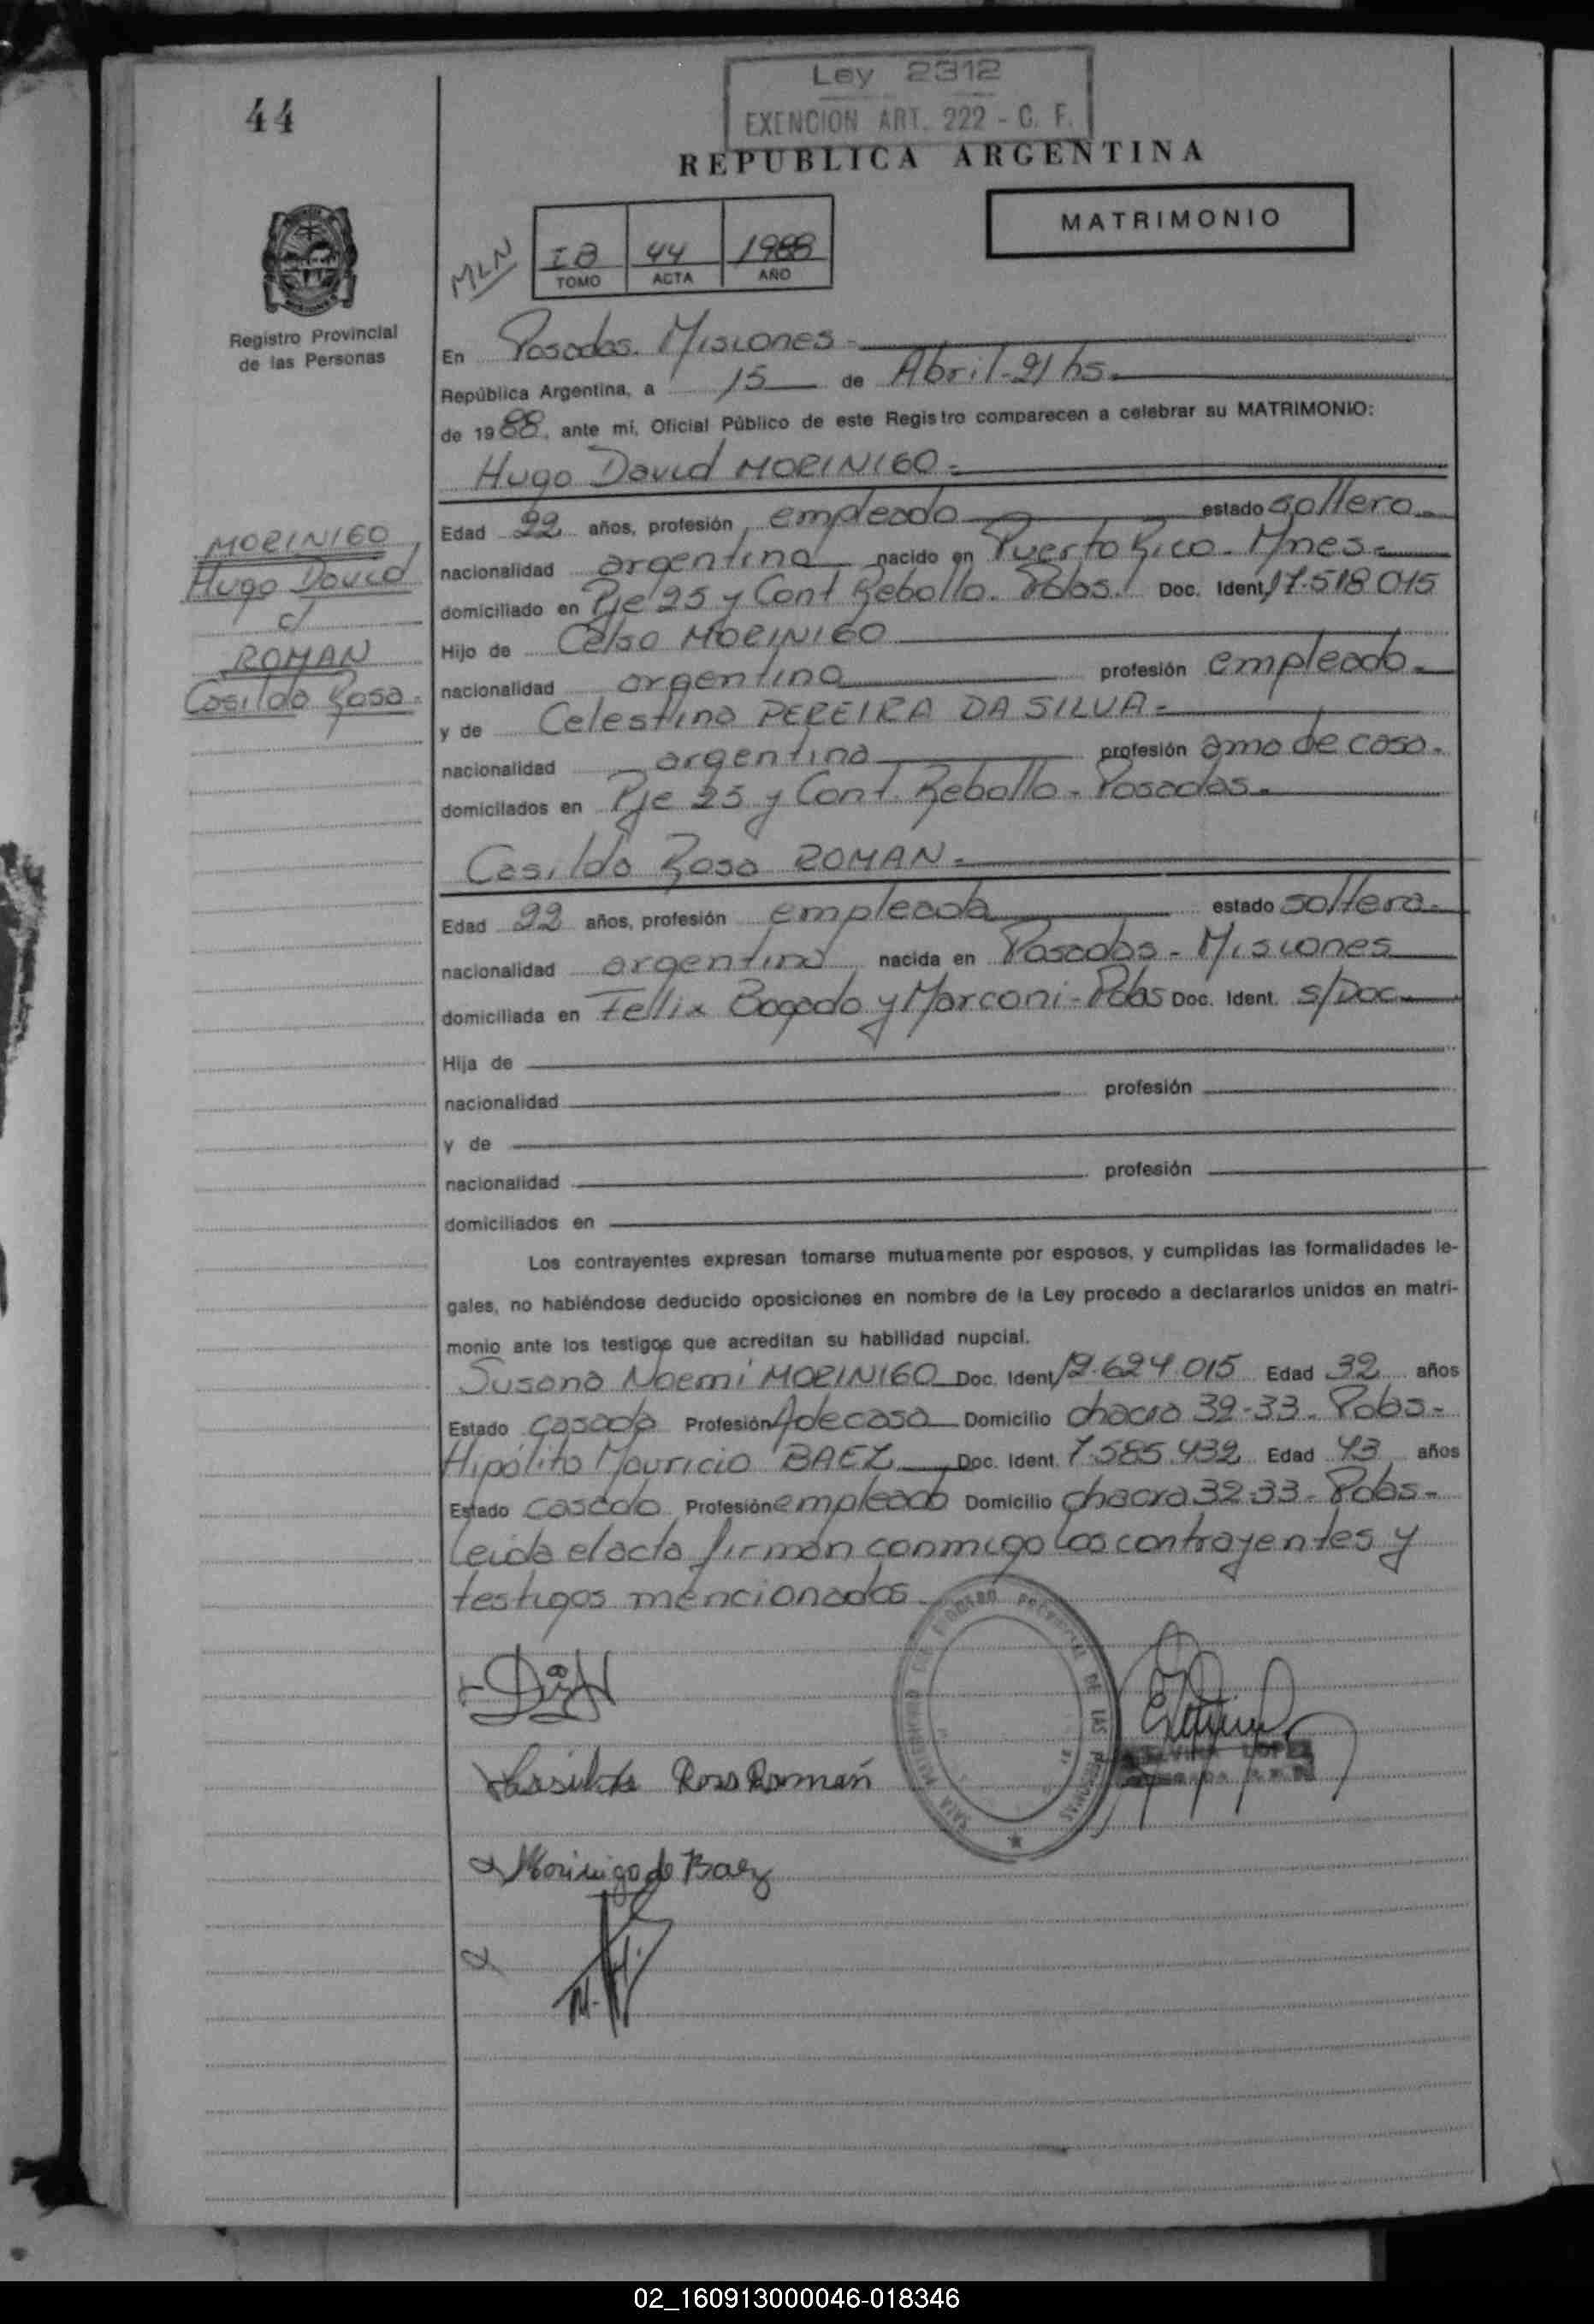 44
Ley 2312
EXENCION ART. 222 - C. F.
REPUBLICA ARGENTINA
MATRIMONIO
MLN
44 1988
TOMO ACTA AÑO
Registro Provincial
de las Personas
En Posadas. Misiones
República Argentina, a 15 de Abril-21 hs.
de 1988, ante mí, Oficial Público de este Registro comparecen a celebrar su MATRIMONIO:
Hugo David MORINIGO
MORINIGO
Hugo David
c/
ROMAN
Casilda Rosa.
Edad 22 años, profesión empleado estado soltero
nacionalidad argentina nacido en Puerto Rico. Mnes
domiciliado en Pje 25 y Cont Rebollo. Pdas. Doc. Ident. 17.518.015
Hijo de Celso MORINIGO
nacionalidad argentina profesión empleado
y de Celestina PEREIRA DA SILVA
nacionalidad argentina profesión ama de casa.
domiciliados en Pje 25 y Cont. Rebollo - Posadas
Casilda Rosa ROMAN
Edad 22 años, profesión empleada estado soltera
nacionalidad argentina nacida en Posadas - Misiones
domiciliada en Fellix Bogado y Marconi - Pdas Doc. Ident. s/Doc
Hija de
nacionalidad profesión
y de
nacionalidad profesión
domiciliados en
Los contrayentes expresan tomarse mutuamente por esposos, y cumplidas las formalidades le-
gales, no habiéndose deducido oposiciones en nombre de la Ley procedo a declararlos unidos en matri-
monio ante los testigos que acreditan su habilidad nupcial.
Susana Noemi MORINIGO Doc. Ident. 12.624.015 Edad 32 años
Estado casada Profesión Adecasa Domicilio chacra 32-33. Pdas-
Hipólito Mauricio BAEZ Doc. Ident. 7.585.432 Edad 43 años
Estado casado Profesión empleado Domicilio chacra 32-33. Pdas-
Leida el acta firman conmigo los contrayentes y
testigos mencionados
Casilda Rosa Román
Morinigo de Baez
02_160913000046-018346